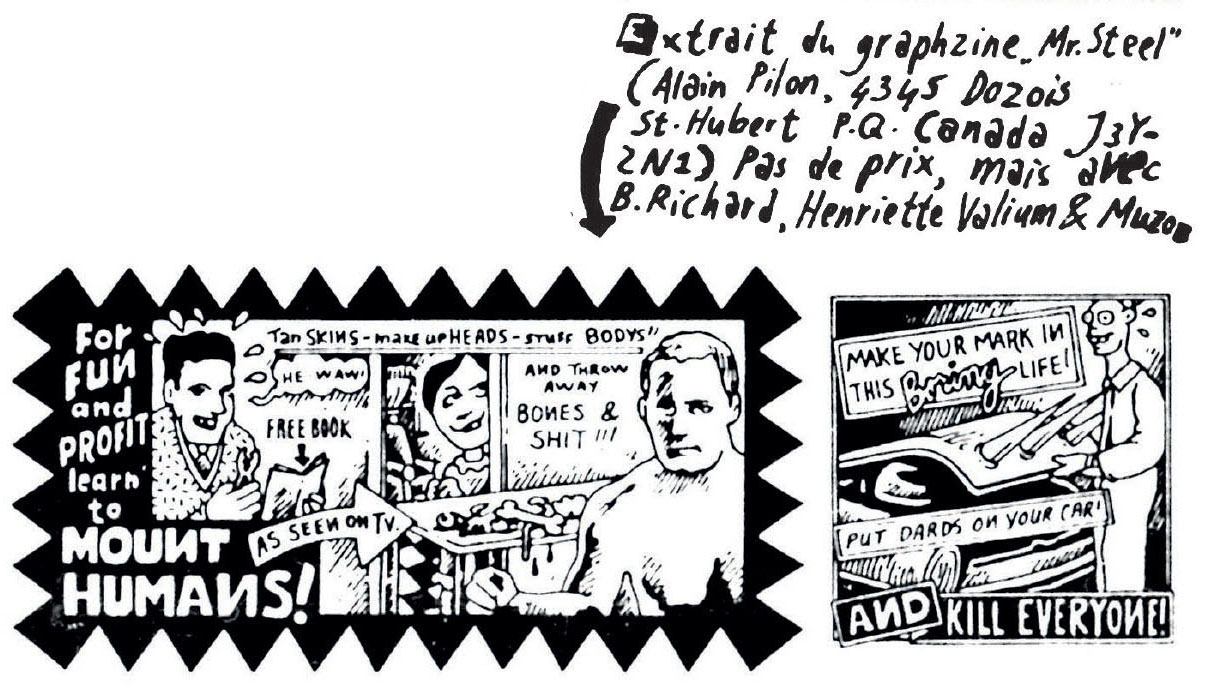 Extrait du graphzine „Mr. Steel"
(Alain Pilon, 4345 Dozois
St. Hubert P.Q. Canada J3Y-
2N1) Pas de prix, mais avec
B. Richard, Henriette Valium & Muzo
For
FUN
and
PROFIT
learn
to
MOUNT
HUMANS!
Tan SKINS - make up HEADS - STUFF BODYS"
HE WAW!
FREE BOOK
AS SEEN ON TV.
AND THROW
AWAY
BONES &
SHIT!!!
MAKE YOUR MARK IN
THIS Boring LIFE!
PUT DARDS ON YOUR CAR!
AND KILL EVERYONE!